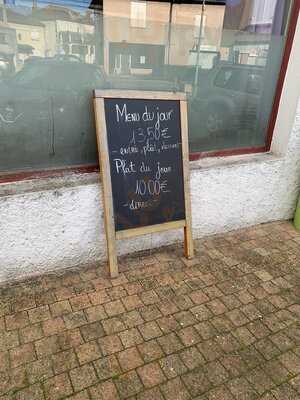 Menu du jour
13,50 €
- entrée, plat, dessert
Plat du jour
10,00 €